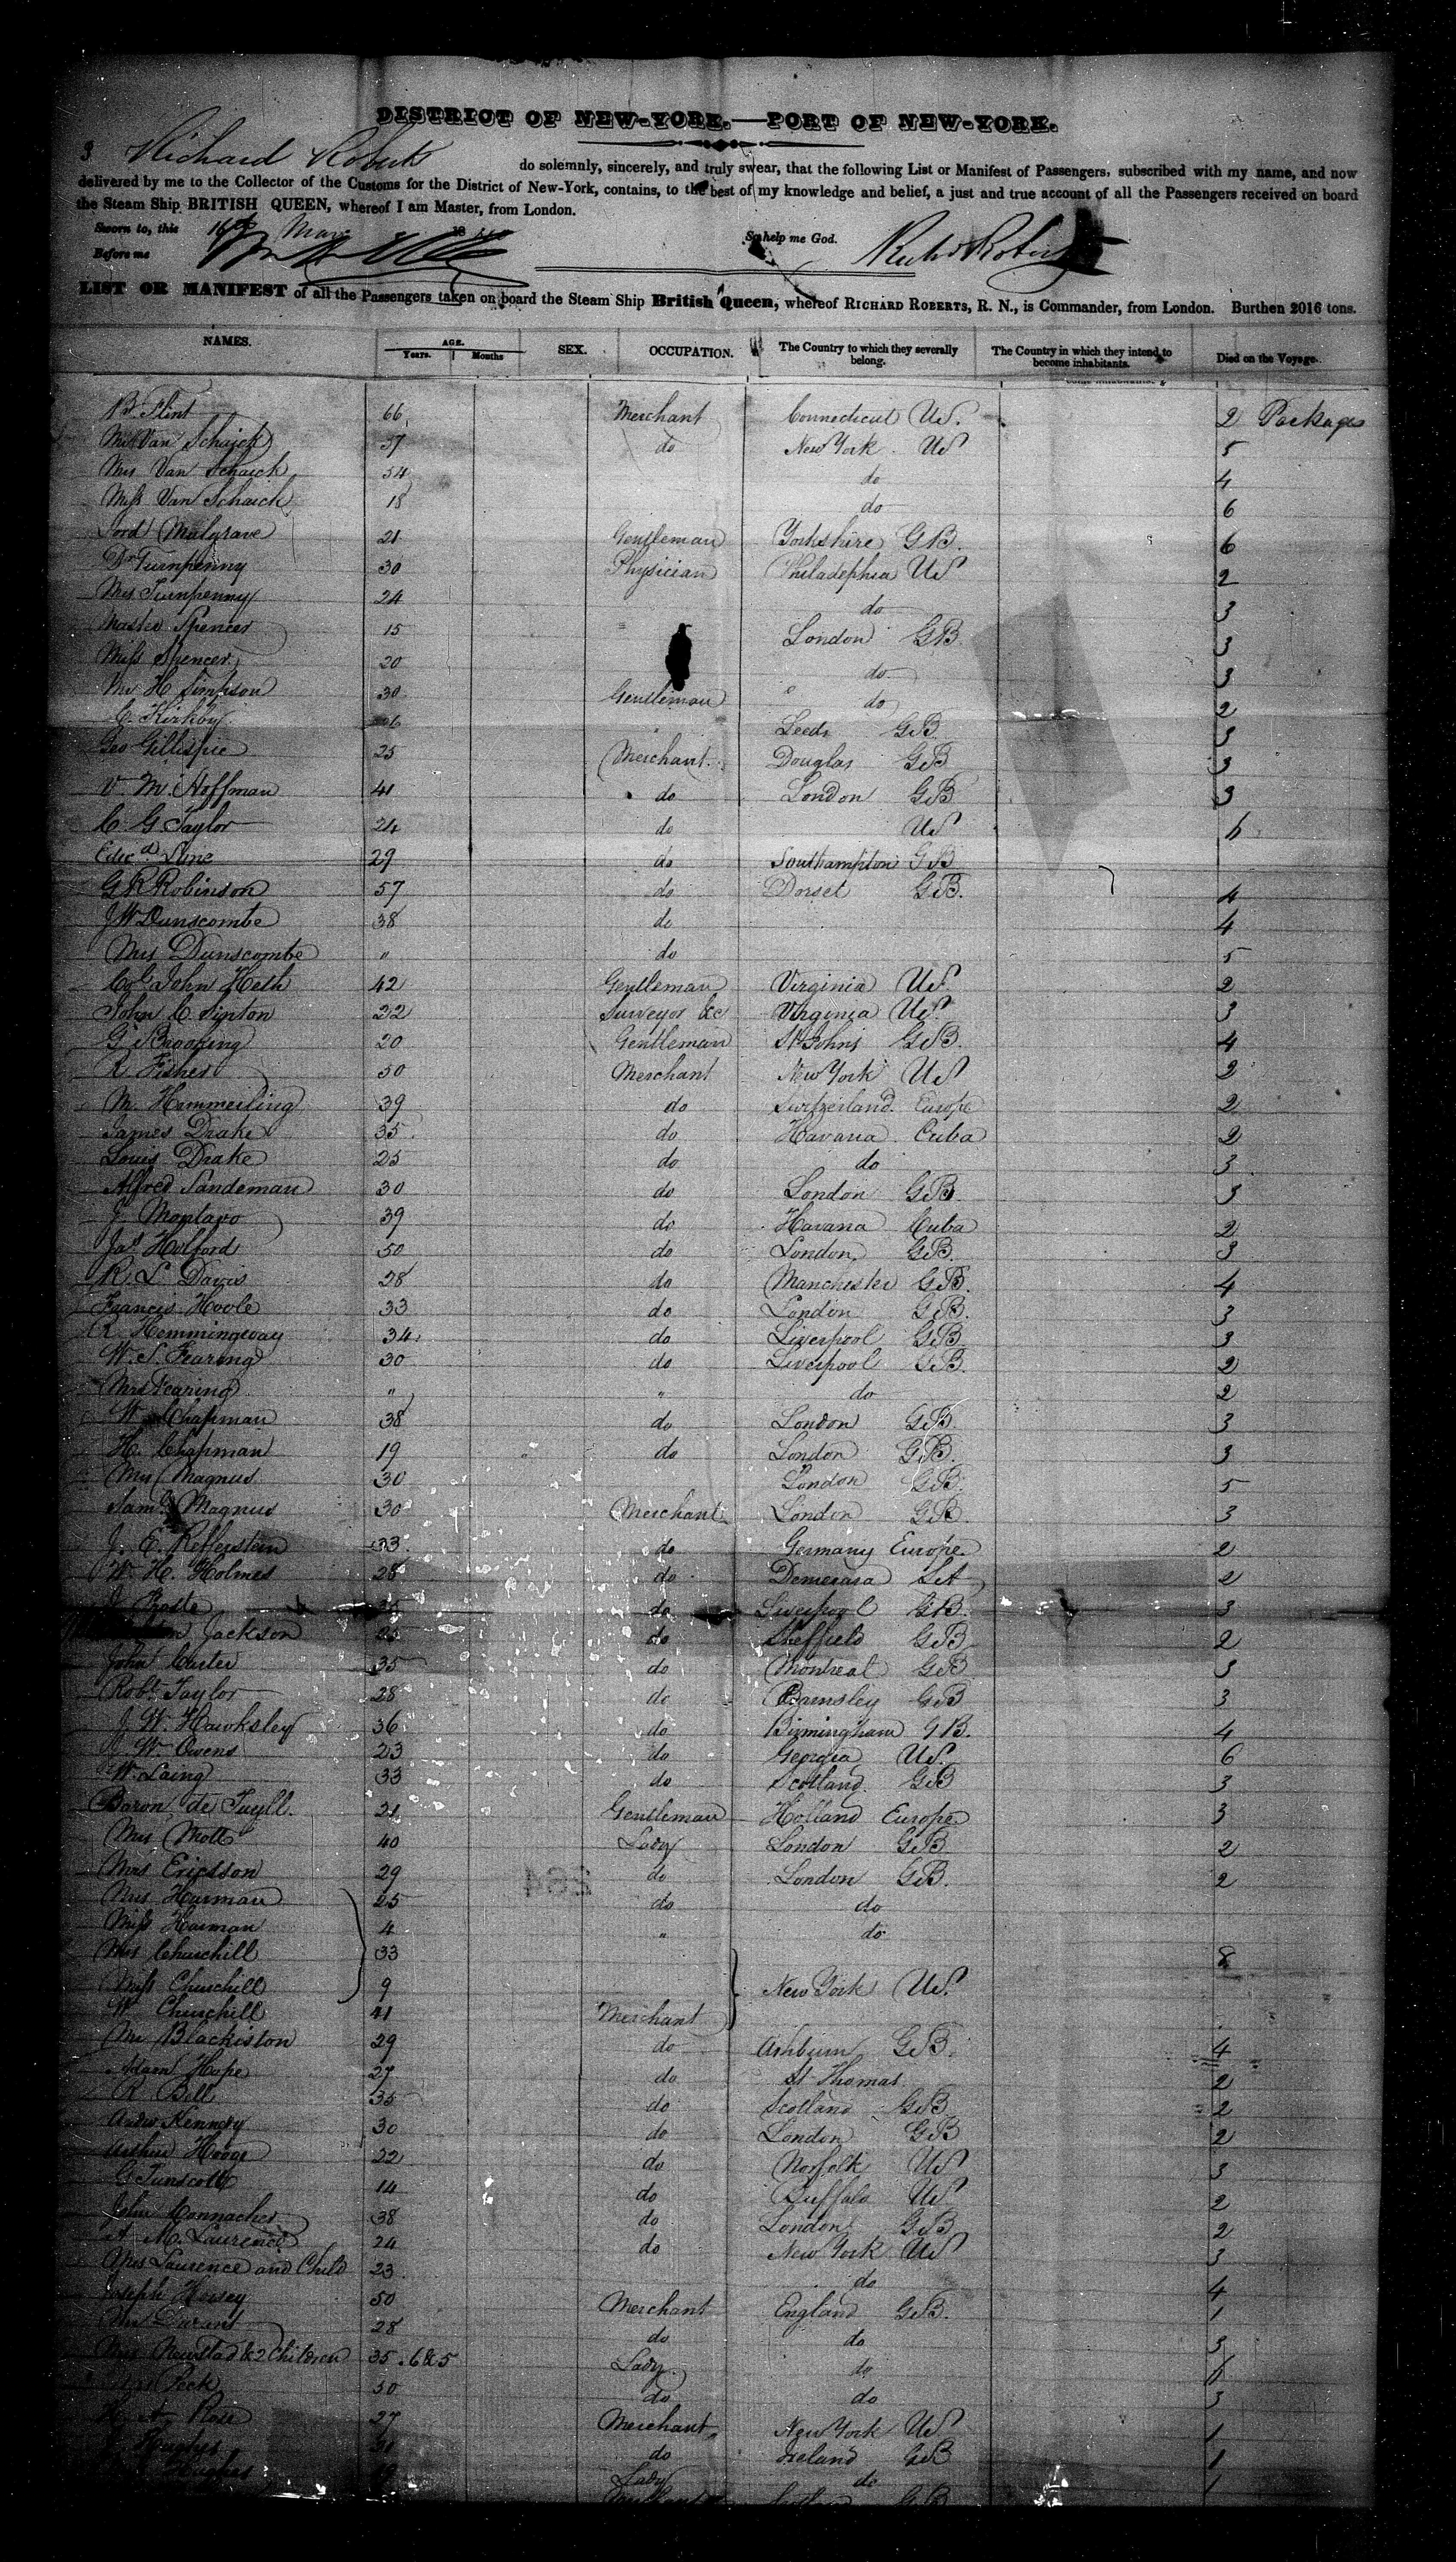 DISTRICT OF NEW-YORK.—PORT OF NEW-YORK.
I Richard Roberts do solemnly, sincerely, and truly swear, that the following List or Manifest of Passengers, subscribed with my name, and now
delivered by me to the Collector of the Customs for the District of New-York, contains, to the best of my knowledge and belief, a just and true account of all the Passengers received on board
the Steam Ship BRITISH QUEEN, whereof I am Master, from London.
Sworn to, this 16th 18 So help me God. Richd Roberts
Before me
LIST OR MANIFEST of all the Passengers taken on board the Steam Ship British Queen, whereof RICHARD ROBERTS, R. N., is Commander, from London. Burthen 2016 tons.
NAMES. AGE. Years. Months SEX. OCCUPATION. The Country to which they severally belong. The Country in which they intend to become inhabitants. Died on the Voyage.
Flint 66 Merchant Connecticut US. 2 Packages
Van Schaick 37 do New York US 5
Mrs Van Schaick 34 do 4
Miss Van Schaick 18 do 6
Lord Mulgrave 21 Gentleman Yorkshire GB. 6
Dr Turnpenny 30 Physician Philadephia US 2
Mrs Turnpenny 24 do 3
Master Spencer 15 London GB 3
Miss Spencer 20 do 3
Mr H Simpson 30 Gentleman do 2
C. Kirkby " Leeds GB 3
Geo Gillespie 25 Merchant Douglas GB 3
V. M. Hoffman 41 do London GB 3
C. G Taylor 24 do US 6
Edwd Lyne 29 do Southampton GB
G R Robinson 57 do Dorset GB. 4
J W Dunscombe 38 do 4
Mrs Dunscombe " do 5
Col John Heth 42 Gentleman Virginia US. 2
John C. Sinton 22 Surveyor &c Virginia US 3
G. Brooking 20 Gentleman St Johns GB. 4
R. Fisher 50 Merchant New York US 2
M. Hammerling 39 do Switzerland. Europe 2
James Drake 35 do Havana Cuba 2
Louis Drake 25 do do 3
Alfred Sandeman 30 do London GB 3
J. Montavo 39 do Havana Cuba 2
Jas Holford 50 do London, GB. 3
R. L Davis 28 do Manchester GB. 4
Francis Hoole 33 do London GB. 3
R. Hemmingway 34 do Liverpool GB 3
W. S. Fearing 30 do Liverpool GB. 2
Mrs Fearing " " do 2
W Chapman 38 do London GB 3
H. Chapman 19 do London GB. 3
Mrs Magnus 30 London GB. 5
Saml Magnus 30 Merchant London GB. 3
J. E. Refferstein 33. do Germany Europe. 2
W. H. Holmes 28 do Demerara 2
J do Liverpool GB. 3
Jackson do Sheffield GB 2
John Carter 35 do Montreal GB 3
Robt Taylor 28 do Barnsley GB 3
J. W. Hawksley 36 do Birmingham GB. 4
W. Owens 23 do Georgia US. 6
W. Laing 33 do Scotland. GB 3
Baron de Tuyll. 21 Gentleman Holland Europe 3
Mrs Mott 40 Lady London GB 2
Mrs Ericsson 29 do London GB. 2
Mrs Harman 25 do do
Miss Harman 4 " do
Mrs Churchill 33 8
Miss Churchill 9 New York US.
W. Churchill 41 Merchant
Mr Blackiston 29 do Ashburn GB. 4
Adam Hope 27 do St Thomas 2
R. Bell 35 do Scotland GB 2
Andw Kennedy 30 do London GB 2
Arthur 22 do Norfolk US 3
G Tunscott 14 do Buffalo US 2
John Connacher 38 do London GB 2
M. Laurence 24 do New York US 3
Mrs Laurence and Child 23. do 4
Joseph Hussey 50 Merchant England GB. 1
Durant 28 do do 3
Mrs Newstad & 2 Children 35. 6 & 5 Lady. do 6
Peck 50 do do 3
H. A. Rose 27 Merchant New York US. 1
Hughes do Ireland GB 1
Hughes Lady do 1
GB